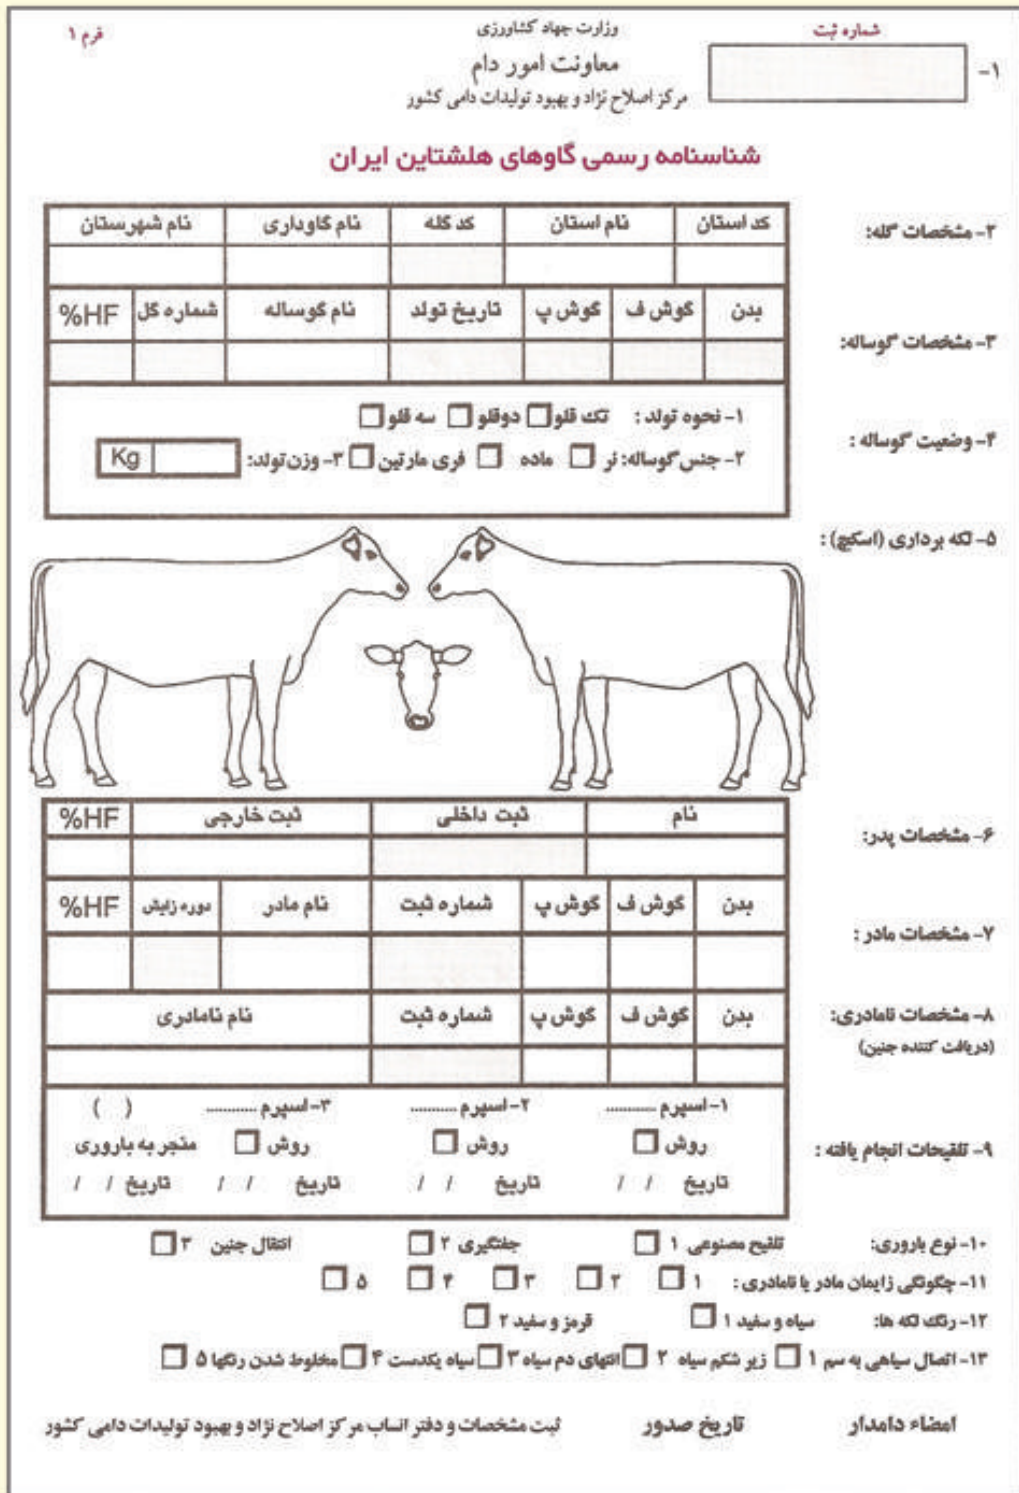 فرم ۱
وزارت جهاد کشاورزی
شماره ثبت
معاونت امور دام
۱-
مرکز اصلاح نژاد و بهبود تولیدات دامی کشور
شناسنامه رسمی گاوهای هلشتاین ایران
۲- مشخصات گله:
کد استان نام استان کد گله نام گاوداری نام شهرستان
۳- مشخصات گوساله:
بدن گوش ف گوش پ تاریخ تولد نام گوساله شماره گل %HF
۴- وضعیت گوساله :
۱- نحوه تولد : تک قلو دوقلو سه قلو
۲- جنس گوساله: نر ماده فری مارتین ۳- وزن تولد: Kg
۵- لکه برداری (اسکیچ) :
۶- مشخصات پدر:
نام ثبت داخلی ثبت خارجی %HF
۷- مشخصات مادر :
بدن گوش ف گوش پ شماره ثبت نام مادر دوره زایش %HF
۸- مشخصات نامادری:
(دریافت کننده جنین)
بدن گوش ف گوش پ شماره ثبت نام نامادری
۹- تلقیحات انجام یافته :
۱- اسپرم .......... ۲- اسپرم .......... ۳- اسپرم .......... ( )
روش روش روش منجر به باروری
تاریخ / / تاریخ / / تاریخ / / تاریخ / /
۱۰- نوع باروری: تلقیح مصنوعی ۱ جفتگیری ۲ انتقال جنین ۳
۱۱- چگونگی زایمان مادر یا نامادری : ۱ ۲ ۳ ۴ ۵
۱۲- رنگ لکه ها: سیاه و سفید ۱ قرمز و سفید ۲
۱۳- اتصال سیاهی به سم ۱ زیر شکم سیاه ۲ انتهای دم سیاه ۳ سیاه یکدست ۴ مخلوط شدن رنگها ۵
امضاء دامدار تاریخ صدور ثبت مشخصات و دفتر انساب مرکز اصلاح نژاد و بهبود تولیدات دامی کشور